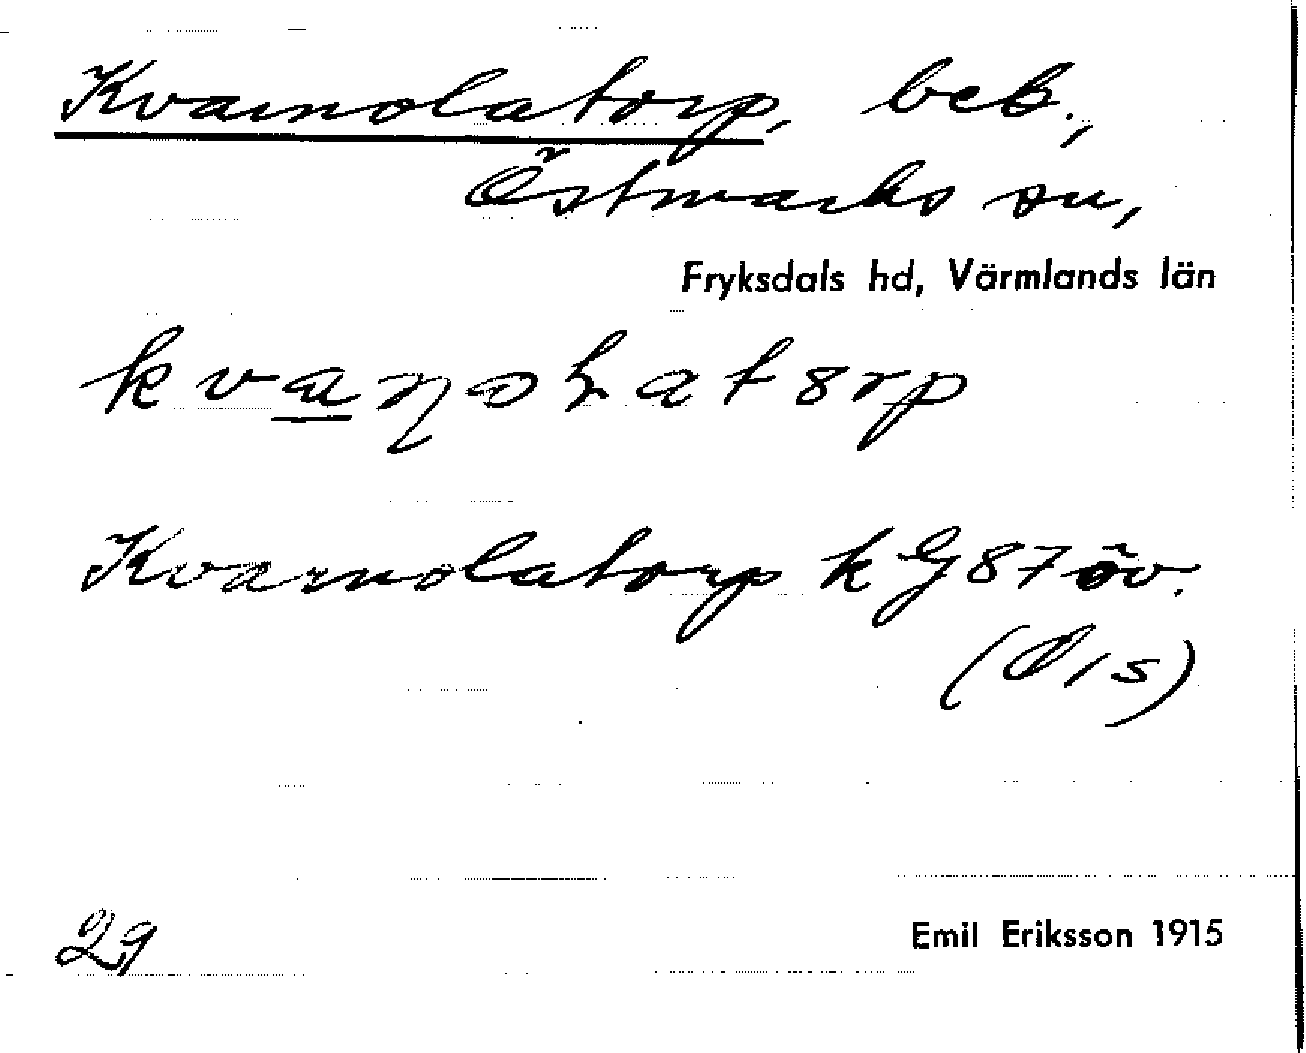 Kvarnolatorp, beb.,
Östmarks sn,
Fryksdals hd, Värmlands län
kvaɳoɽat8rp
Kvarnolatorp k G 87 öv.
29
Emil Eriksson 1915